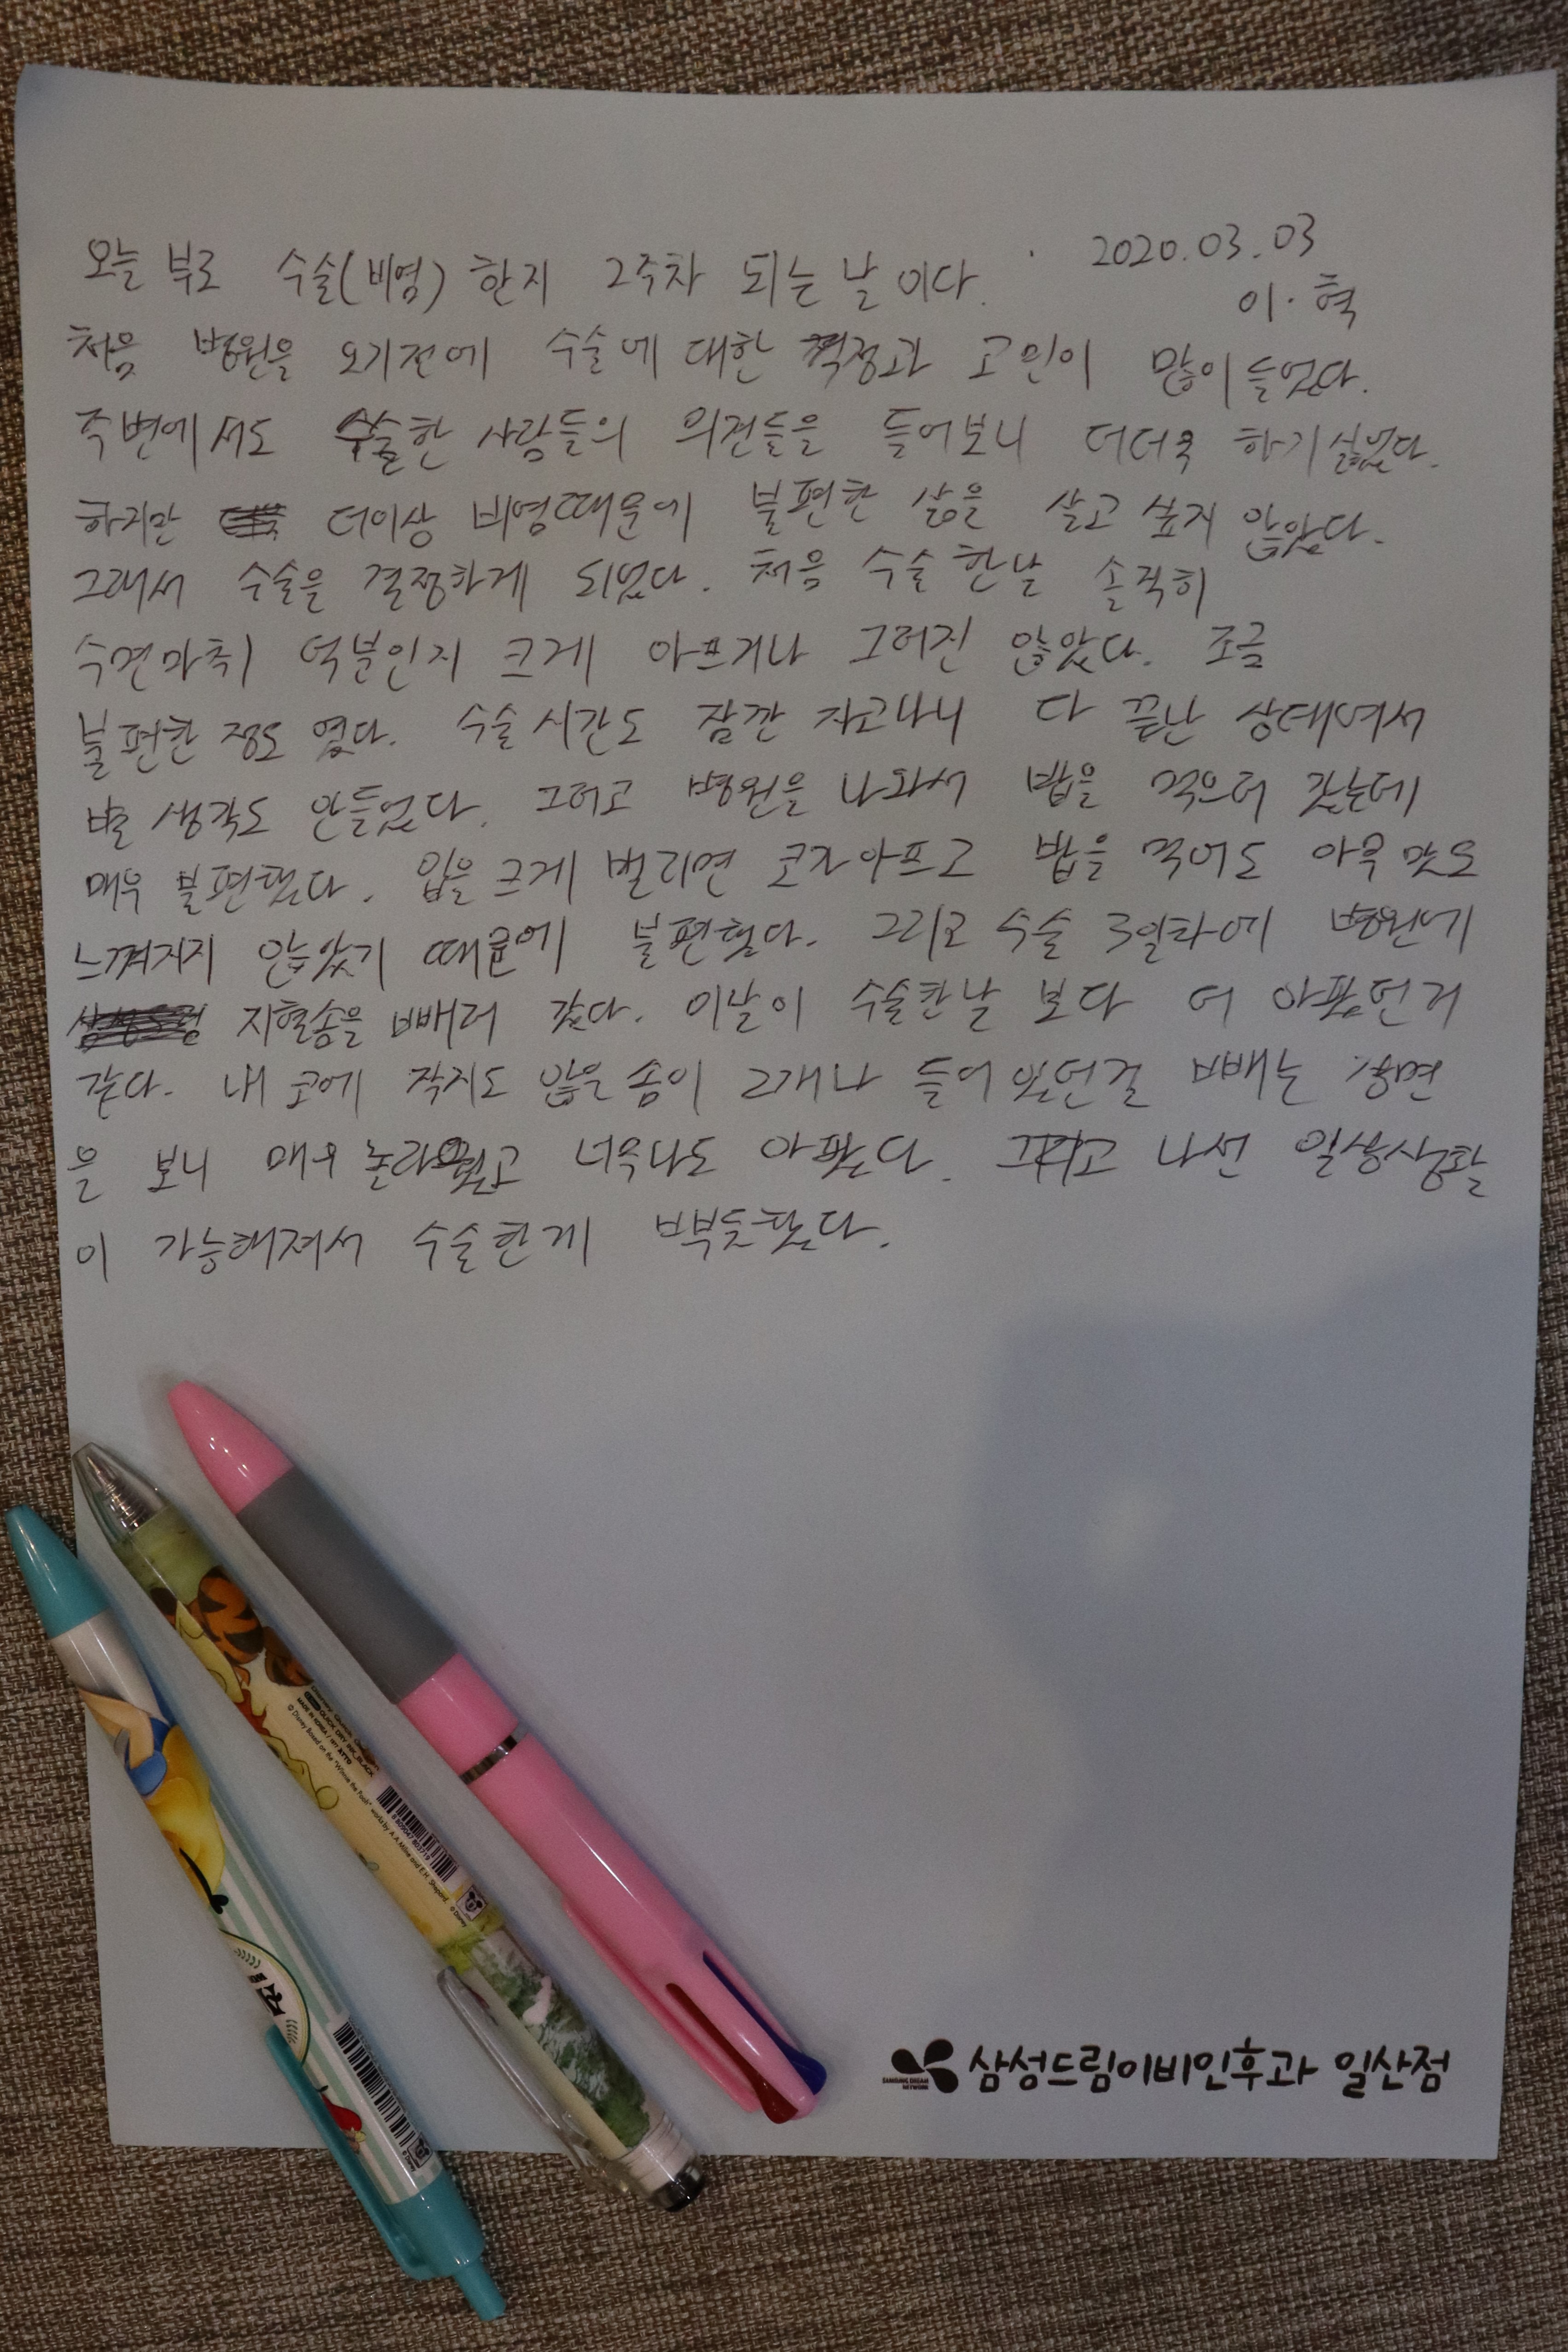 오늘 부로 수술(비염) 한지 2주차 되는 날 이다.
2020.03.03
이·혁
처음 병원을 오기전에 수술에 대한 걱정과 고민이 많이 들었다.
주변에서도 수술한 사람들의 의견들을 들어보니 더더욱 하기 싫었다.
하지만 더이상 비염때문에 불편한 삶을 살고 싶지 않았다.
그래서 수술을 결정하게 되었다. 처음 수술 한날 솔직히
수면마취 덕분인지 크게 아프거나 그러진 않았다. 조금
불편한 정도 였다. 수술 시간도 잠깐 자고나니 다 끝난 상태여서
별 생각도 안들었다. 그러고 병원을 나와서 밥을 먹으러 갔는데
매우 불편했다. 입을 크게 벌리면 코가 아프고 밥을 먹어도 아무 맛도
느껴지지 않았기 때문에 불편했다. 그리고 수술 3일차에 병원에
지혈솜을 빼러 갔다. 이날이 수술한날 보다 더 아팠던거
같다. 내 코에 작지도 않은 솜이 2개나 들어 있던걸 빼는 장면
을 보니 매우 놀라웠고 너무나도 아팠다. 그리고 나선 일상생활
이 가능해져서 수술한게 뿌듯했다.
DISNEY
MADE IN KOREA
© Disney Based on the "Winnie the Pooh" works by A.A. Milne and E.H. Shepard.
© Disney
SAMSUNG DREAM
NETWORK
삼성드림이비인후과 일산점